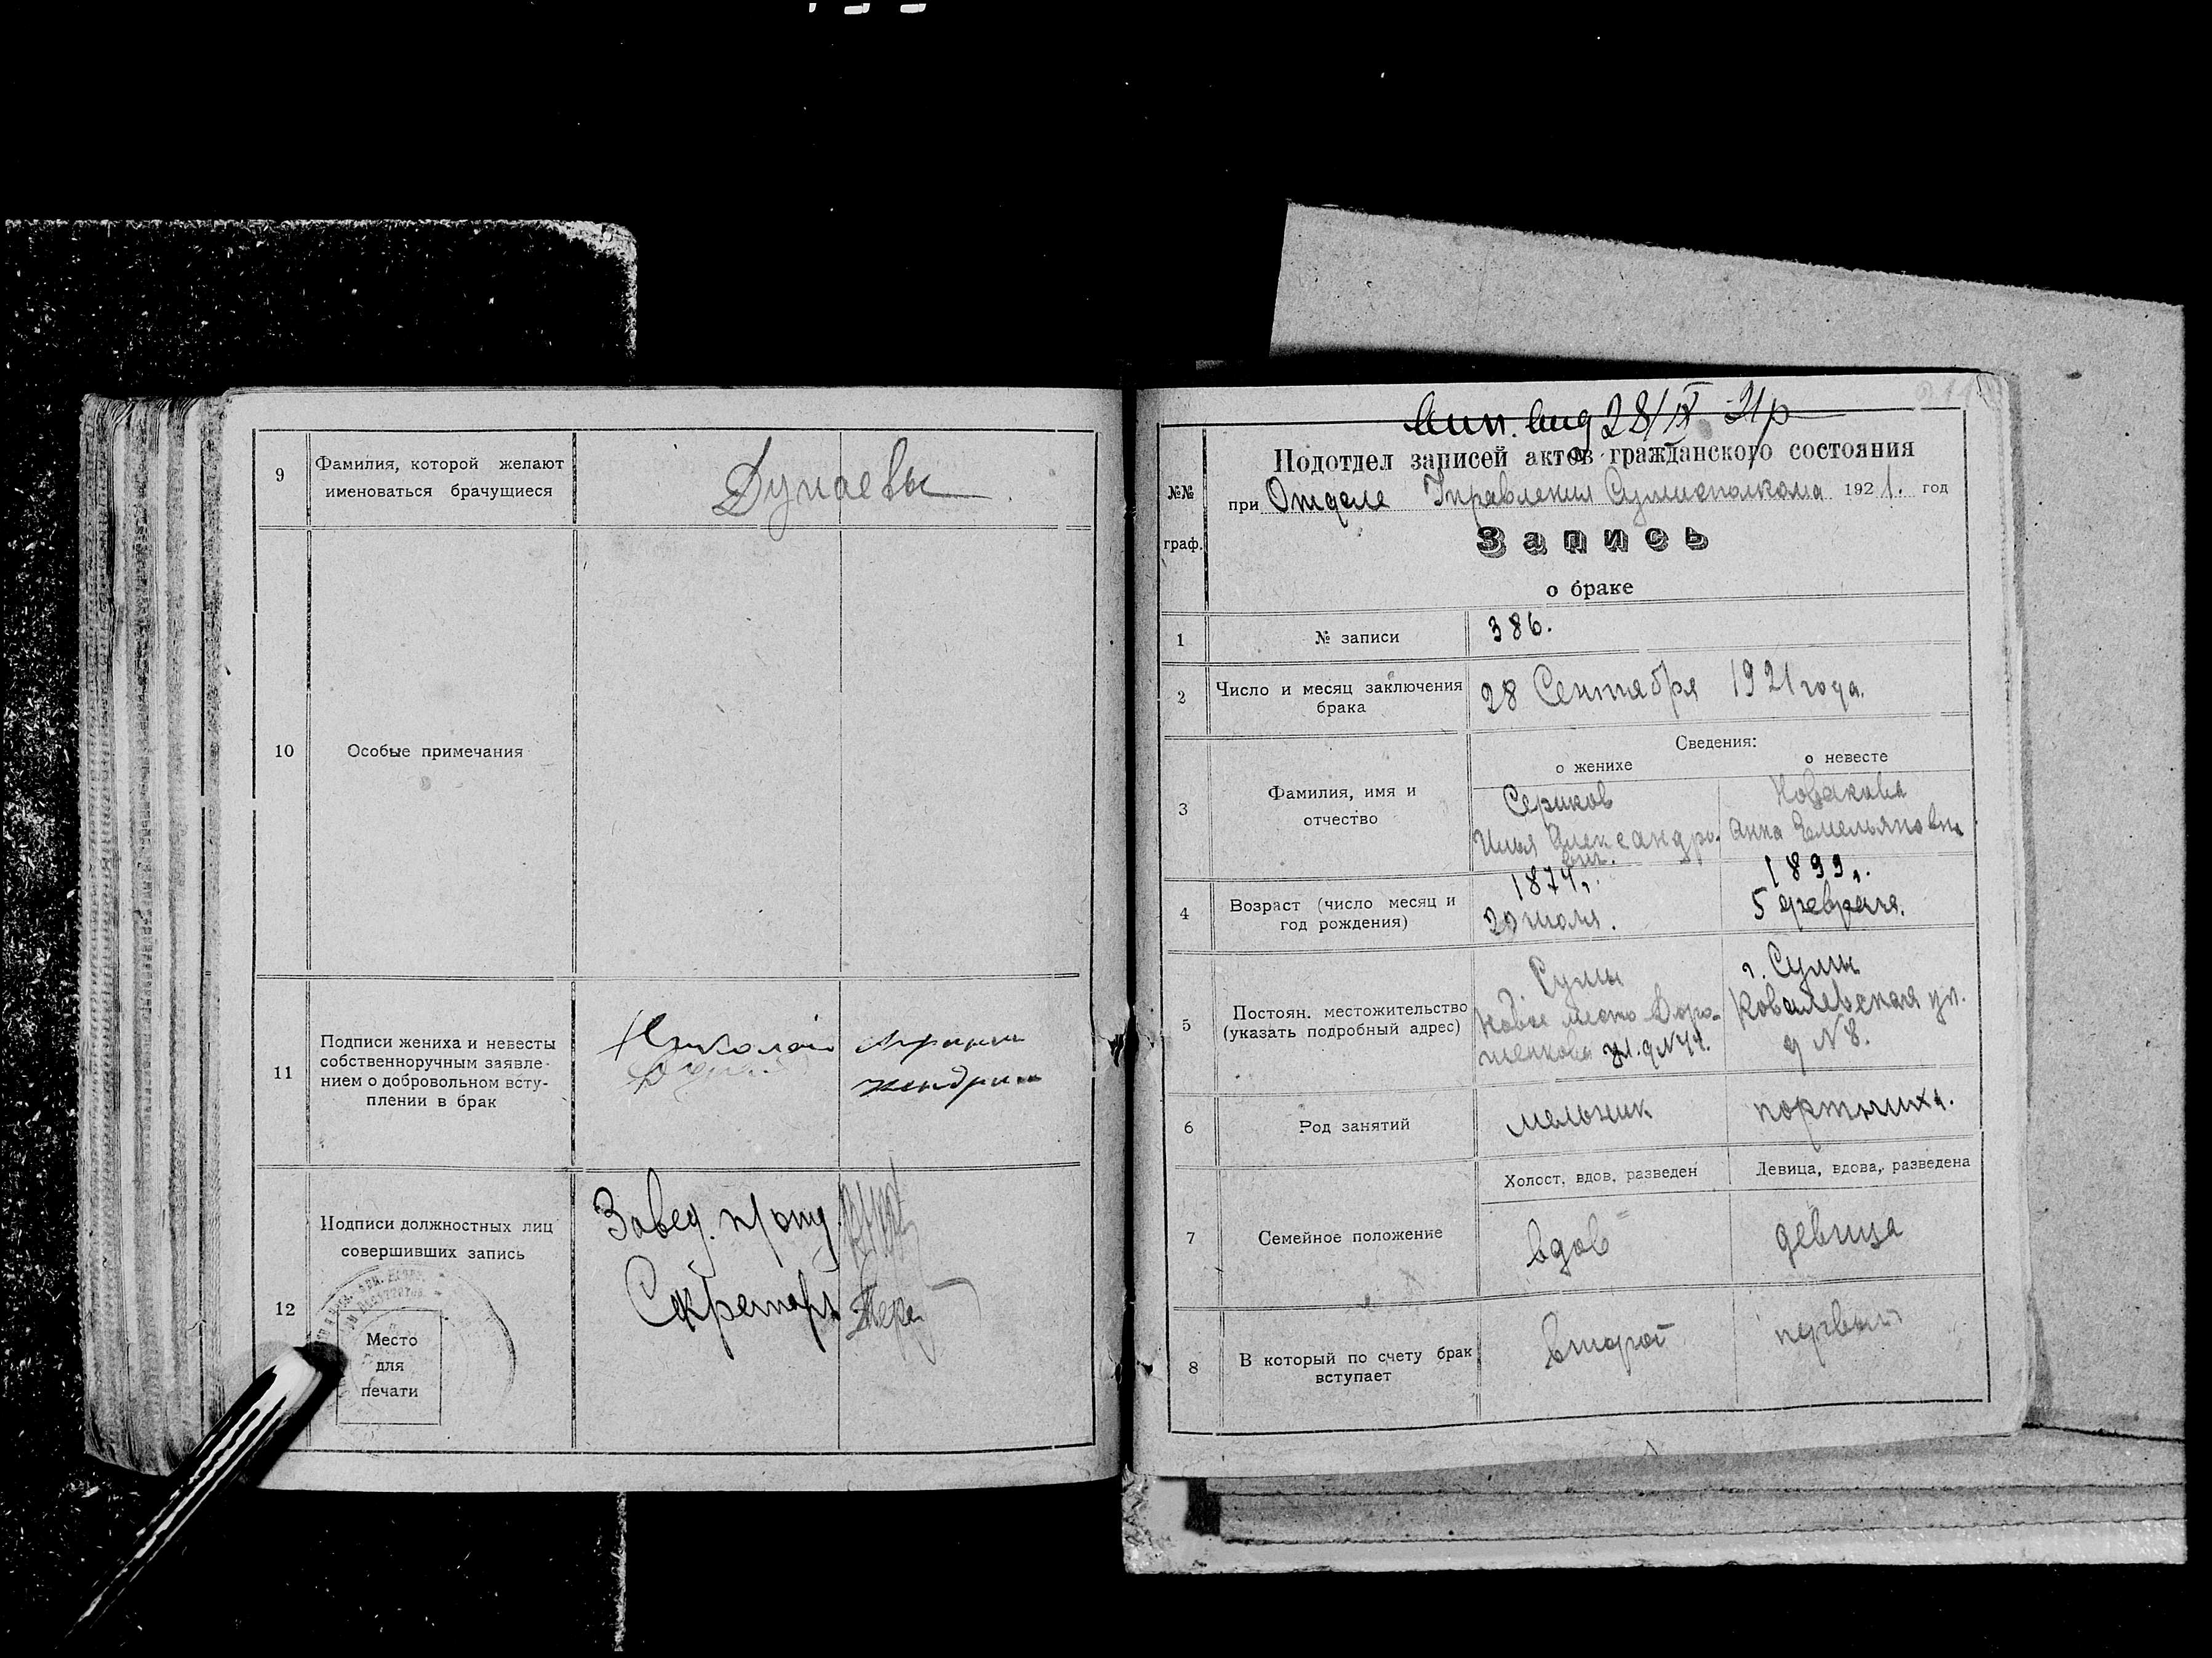 9
Фамилия, которой желают
именоваться брачущиеся
Дунаевы
10
Особые примечания
11
Подписи жениха и невесты
собственноручным заявле-
нием о добровольном всту-
плении в брак
Николай
12
Подписи должностных лиц
совершивших запись
Завед. п/отд
Секретарь
Место
для
печати
28/IX 21р
№№
граф.
Подотдел записей актов гражданского состояния
при Отделе Управления Сумисполкома 1921. год
Запись
о браке
1
№ записи
386.
2
Число и месяц заключения
брака
28 Сентября 1921 года.
Сведения:
о женихе
о невесте
3
Фамилия, имя и
отчество
Сериков
Илья Александро-
вич.
Новакова
Анна Емельяновна
4
Возраст (число месяц и
год рождения)
1874 г.
20 июля.
1899 г.
5 февраля.
5
Постоян. местожительство
(указать подробный адрес)
Сумы
Новое место Доро-
шенкова ул. д №44.
г. Сумы
Ковалевская ул.
д №8.
6
Род занятий
мельник
портниха.
7
Семейное положение
Холост, вдов, разведен
Девица, вдова, разведена
вдов
девица
8
В который по счету брак
вступает
второй
первый